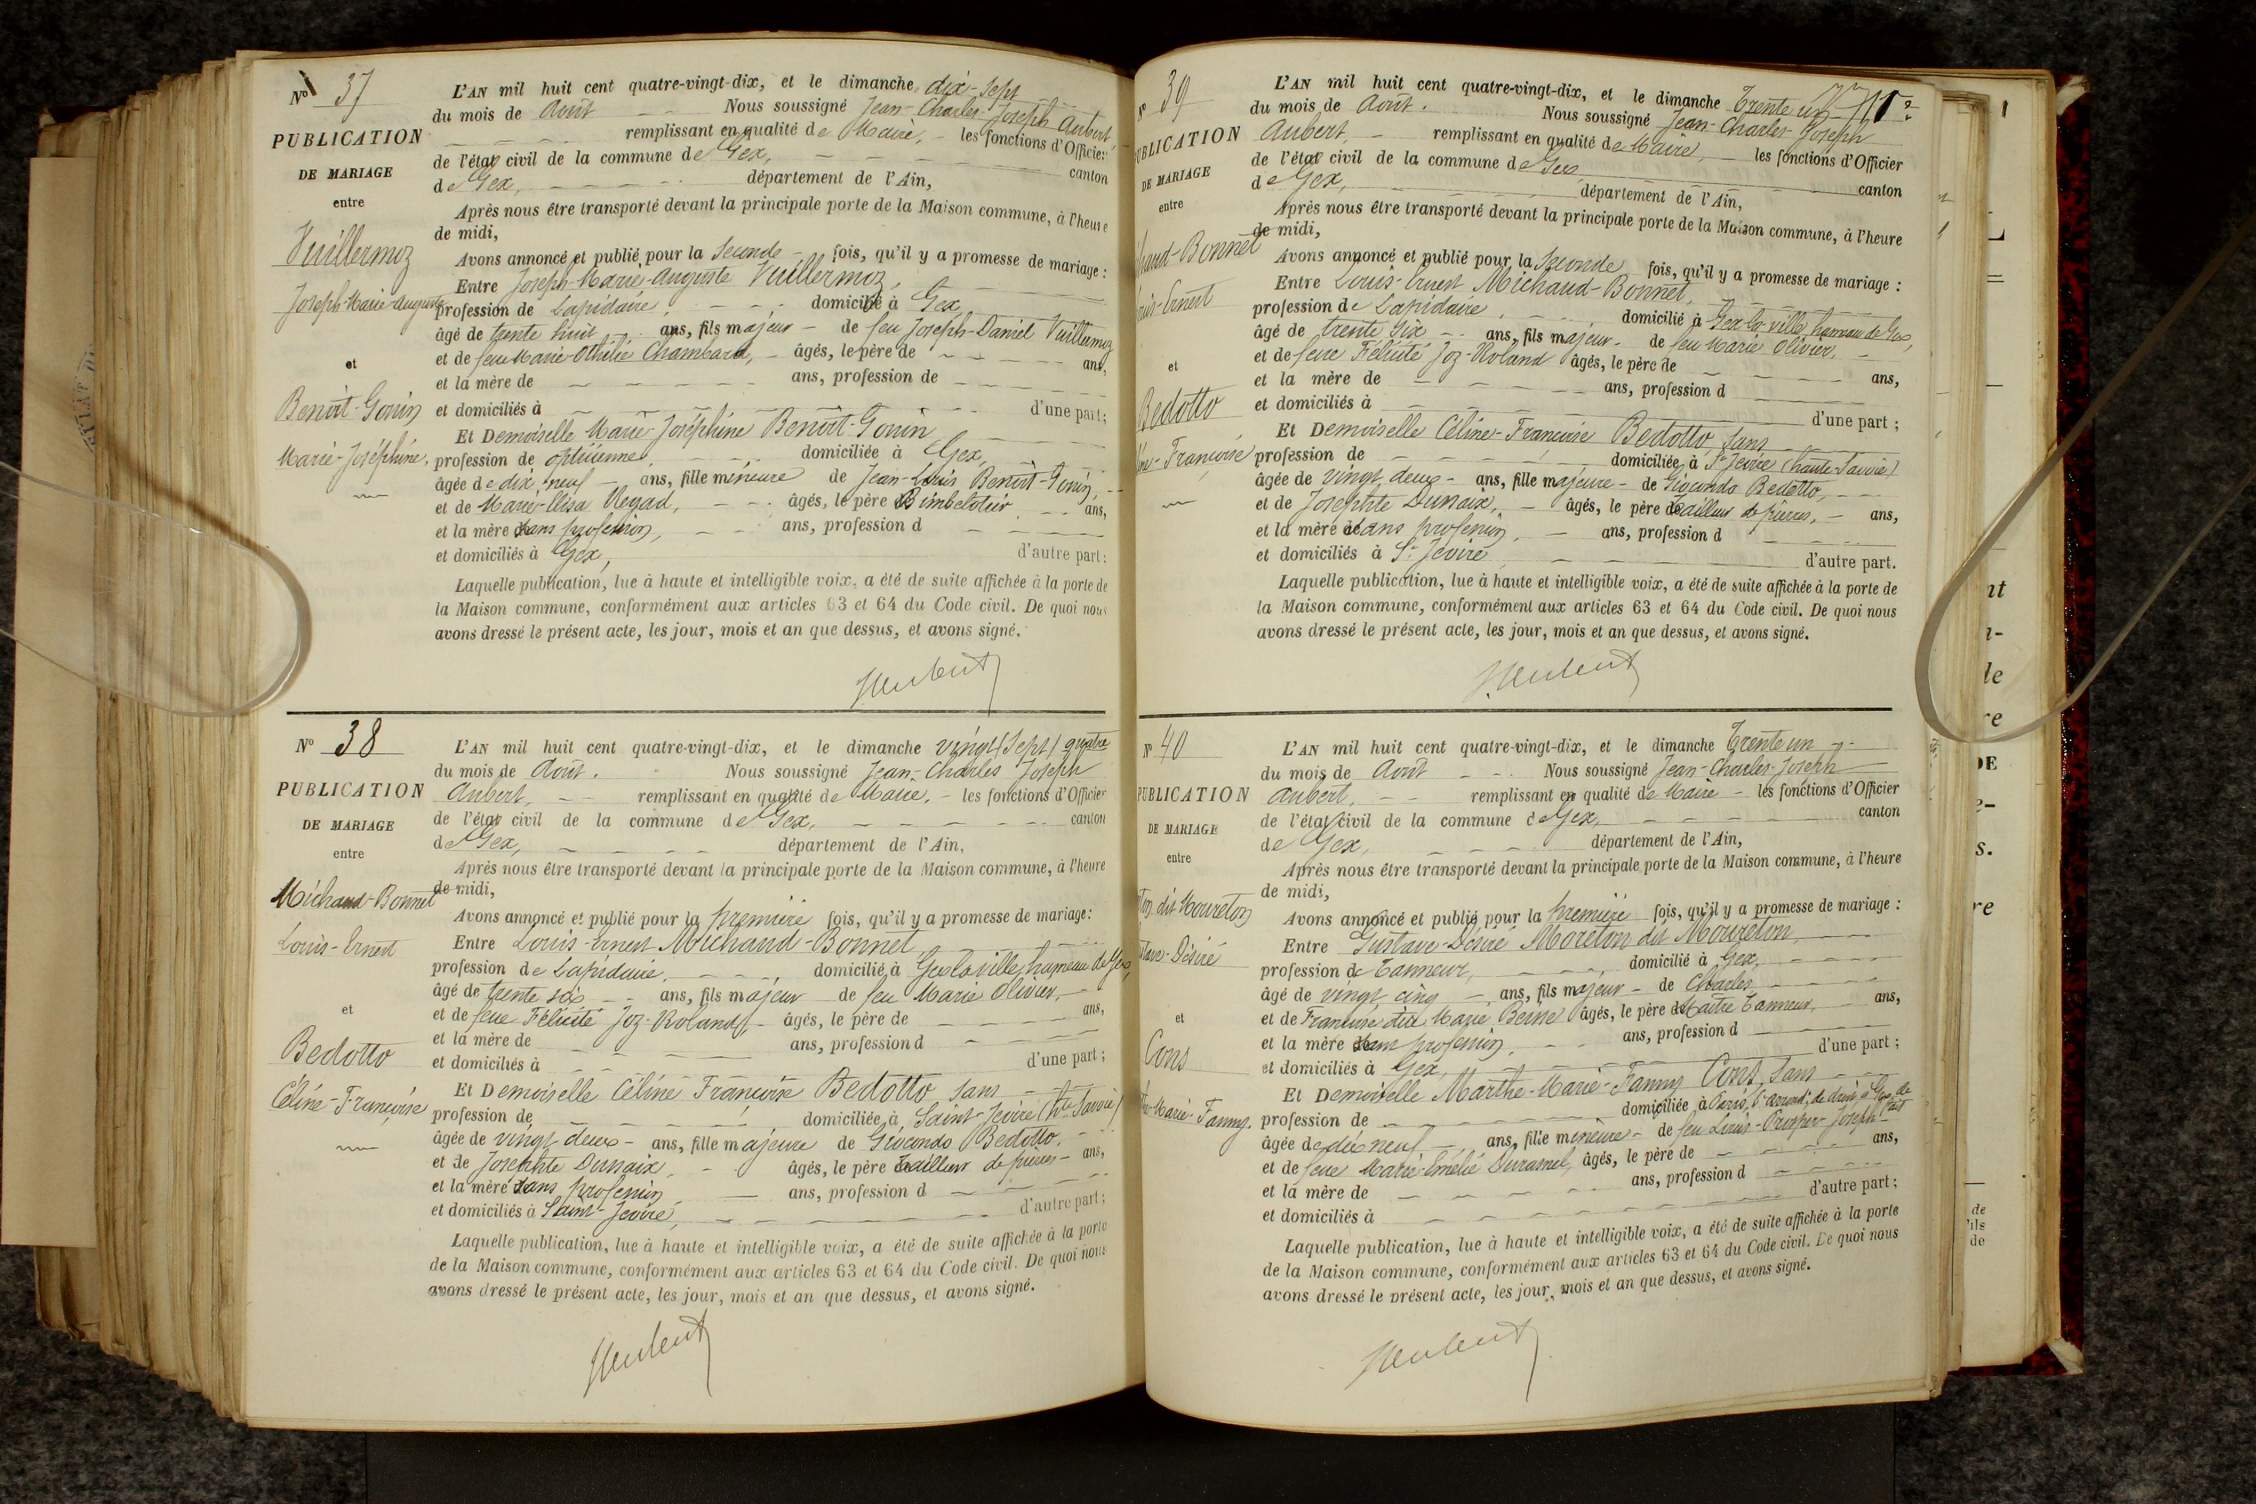 N° 37
PUBLICATION
DE MARIAGE
entre
Vuillermoz
Joseph-Marie-Auguste
et
Benoit-Gonin
Marie-Joséphine,
L'AN mil huit cent quatre-vingt-dix, et le dimanche, dix-sept
du mois de Août Nous soussigné Jean-Charles-Joseph Aubert,
remplissant en qualité de Maire, les fonctions d'Officier
de l'état civil de la commune de Gex, canton
de Gex, département de l'Ain,
Après nous être transporté devant la principale porte de la Maison commune, à l'heure
de midi,
Avons annoncé et publié pour la seconde fois, qu'il y a promesse de mariage :
Entre Joseph-Marie-Auguste Vuillermoz,
profession de Lapidaire, domicilié à Gex,
âgé de trente huit ans, fils majeur de feu Joseph-Daniel Vuillermoz
et de feue Marie-Othilie Chambard, âgés, le père de ans,
et la mère de ans, profession de
et domiciliés à d'une part ;
Et Demoiselle Marie-Joséphine Benoit-Gonin
profession de opticienne, domiciliée à Gex,
âgée de dix neuf ans, fille mineure de Jean-Louis Benoit-Gonin,
et de Marie-Elisa Regad, âgés, le père Bimbelotier ans,
et la mère sans profession, ans, profession d
et domiciliés à Gex, d'autre part :
Laquelle publication, lue à haute et intelligible voix, a été de suite affichée à la porte de
la Maison commune, conformément aux articles 63 et 64 du Code civil. De quoi nous
avons dressé le présent acte, les jour, mois et an que dessus, et avons signé.
N° 38
PUBLICATION
DE MARIAGE
entre
Michaud-Bonnet
Louis-Ernest
et
Bedotto
Céline-Françoise
L'AN mil huit cent quatre-vingt-dix, et le dimanche vingt (sept) quatre
du mois de Août. Nous soussigné Jean-Charles Joseph
Aubert, remplissant en qualité de Maire, les fonctions d'Officier
de l'état civil de la commune de Gex, canton
de Gex, département de l'Ain,
Après nous être transporté devant la principale porte de la Maison commune, à l'heure
de midi,
Avons annoncé et publié pour la première fois, qu'il y a promesse de mariage :
Entre Louis-Ernest Michaud-Bonnet,
profession de Lapidaire, domicilié à Gex la ville, hameau de Gex,
âgé de trente six ans, fils majeur de feu Marie Olivier,
et de feue Félicité Joz-Roland, âgés, le père de ans,
et la mère de ans, profession d
et domiciliés à d'une part ;
Et Demoiselle Céline Françoise Bedotto sans
profession de domiciliée à Saint-Jeoire (Hte Savoie)
âgée de vingt deux ans, fille majeure de Giocondo Bedotto,
et de Josephte Dunoix, âgés, le père tailleur de pierres ans,
et la mère sans profession ans, profession d
et domiciliés à Saint-Jeoire, d'autre part ;
Laquelle publication, lue à haute et intelligible voix, a été de suite affichée à la porte
de la Maison commune, conformément aux articles 63 et 64 du Code civil. De quoi nous
avons dressé le présent acte, les jour, mois et an que dessus, et avons signé.
N° 39
PUBLICATION
DE MARIAGE
entre
haud-Bonnet
uis-Ernest
et
Bedotto
ine-Françoise
L'AN mil huit cent quatre-vingt-dix, et le dimanche Trente un
du mois de Août. Nous soussigné Jean-Charles-Joseph
Aubert, remplissant en qualité de Maire, les fonctions d'Officier
de l'état civil de la commune de Gex canton
de Gex, département de l'Ain,
Après nous être transporté devant la principale porte de la Maison commune, à l'heure
de midi,
Avons annoncé et publié pour la seconde fois, qu'il y a promesse de mariage :
Entre Louis-Ernest Michaud-Bonnet,
profession de Lapidaire, domicilié à Gex la ville, hameau de Gex,
âgé de trente six ans, fils majeur de feu Marie Olivier,
et de feue Félicité Joz-Roland âgés, le père de ans,
et la mère de ans, profession d
et domiciliés à d'une part ;
Et Demoiselle Céline-Françoise Bedotto, sans
profession de domiciliée à St Jeoire (haute-Savoie)
âgée de vingt deux ans, fille majeure de Giocondo Bedotto,
et de Josephte Dunoix, âgés, le père tailleur de pierres, ans,
et la mère sans profession, ans, profession d
et domiciliés à St Jeoire, d'autre part.
Laquelle publication, lue à haute et intelligible voix, a été de suite affichée à la porte de
la Maison commune, conformément aux articles 63 et 64 du Code civil. De quoi nous
avons dressé le présent acte, les jour, mois et an que dessus, et avons signé.
N° 40
PUBLICATION
DE MARIAGE
entre
ton dit Moureton
stave-Désiré
et
Cons
the-Marie-Fanny.
L'AN mil huit cent quatre-vingt-dix, et le dimanche Trente un
du mois de Août Nous soussigné Jean-Charles-Joseph
Aubert, remplissant en qualité de Maire les fonctions d'Officier
de l'état civil de la commune de Gex, canton
de Gex, département de l'Ain,
Après nous être transporté devant la principale porte de la Maison commune, à l'heure
de midi,
Avons annoncé et publié pour la première fois, qu'il y a promesse de mariage :
Entre Gustave-Désiré Moreton dit Moureton,
profession de Tanneur, domicilié à Gex,
âgé de vingt cinq ans, fils majeur de Charles
et de Françoise dite Marie Beine âgés, le père Maître Tanneur, ans,
et la mère sans profession, ans, profession d
et domiciliés à Gex, d'une part ;
Et Demoiselle Marthe-Marie-Fanny Cons, sans
profession de domiciliée à Paris, arrond. de droit, à Gex de fait
âgée de dix neuf ans, fille mineure de feu Louis-Prosper-Joseph
et de feue Marie-Emélie Duramel, âgés, le père de ans,
et la mère de ans, profession d
et domiciliés à d'autre part ;
Laquelle publication, lue à haute et intelligible voix, a été de suite affichée à la porte
de la Maison commune, conformément aux articles 63 et 64 du Code civil. De quoi nous
avons dressé le présent acte, les jour, mois et an que dessus, et avons signé.